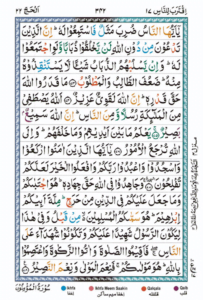 اِقْتَرَبَ لِلنَّاسِ ١٧ ٣٣٢ اَلْحَجّ ٢٢
يٰۤاَيُّهَا النَّاسُ ضُرِبَ مَثَلٌ فَاسْتَمِعُوْا لَهٗ ؕ اِنَّ الَّذِيْنَ
تَدْعُوْنَ مِنْ دُوْنِ اللّٰهِ لَنْ يَّخْلُقُوْا ذُبَابًا وَّلَوِ اجْتَمَعُوْا
لَهٗ ؕ وَاِنْ يَّسْلُبْهُمُ الذُّبَابُ شَيْـًٔا لَّا يَسْتَنْقِذُوْهُ
مِنْهُ ؕ ضَعُفَ الطَّالِبُ وَالْمَطْلُوْبُ مَا قَدَرُوا اللّٰهَ
حَقَّ قَدْرِهٖ ؕ اِنَّ اللّٰهَ لَقَوِيٌّ عَزِيْزٌ اَللّٰهُ يَصْطَفِيْ
مِنَ الْمَلٰٓئِكَةِ رُسُلًا وَّمِنَ النَّاسِ ؕ اِنَّ اللّٰهَ سَمِيْعٌۢ
بَصِيْرٌ يَعْلَمُ مَا بَيْنَ اَيْدِيْهِمْ وَمَا خَلْفَهُمْ ؕ وَاِلَى
اللّٰهِ تُرْجَعُ الْاُمُوْرُ يٰۤاَيُّهَا الَّذِيْنَ اٰمَنُوا ارْكَعُوْا
وَاسْجُدُوْا وَاعْبُدُوْا رَبَّكُمْ وَافْعَلُوا الْخَيْرَ لَعَلَّكُمْ
تُفْلِحُوْنَ وَجَاهِدُوْا فِي اللّٰهِ حَقَّ جِهَادِهٖ ؕ هُوَ اجْتَبٰىكُمْ
وَمَا جَعَلَ عَلَيْكُمْ فِي الدِّيْنِ مِنْ حَرَجٍ ؕ مِلَّةَ اَبِيْكُمْ
اِبْرٰهِيْمَ ؕ هُوَ سَمّٰىكُمُ الْمُسْلِمِيْنَ مِنْ قَبْلُ وَفِيْ هٰذَا
لِيَكُوْنَ الرَّسُوْلُ شَهِيْدًا عَلَيْكُمْ وَتَكُوْنُوْا شُهَدَآءَ عَلَى
النَّاسِ فَاَقِيْمُوا الصَّلٰوةَ وَاٰتُوا الزَّكٰوةَ وَاعْتَصِمُوْا
بِاللّٰهِ ؕ هُوَ مَوْلٰىكُمْ فَنِعْمَ الْمَوْلٰى وَنِعْمَ النَّصِيْرُ